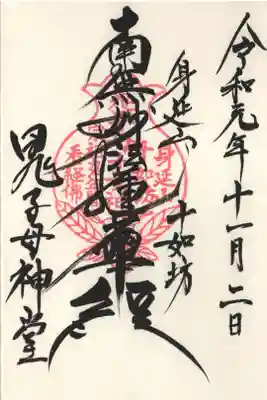 令和元年十一月二日
身延山 十如坊
南無妙法蓮華経
鬼子母神堂